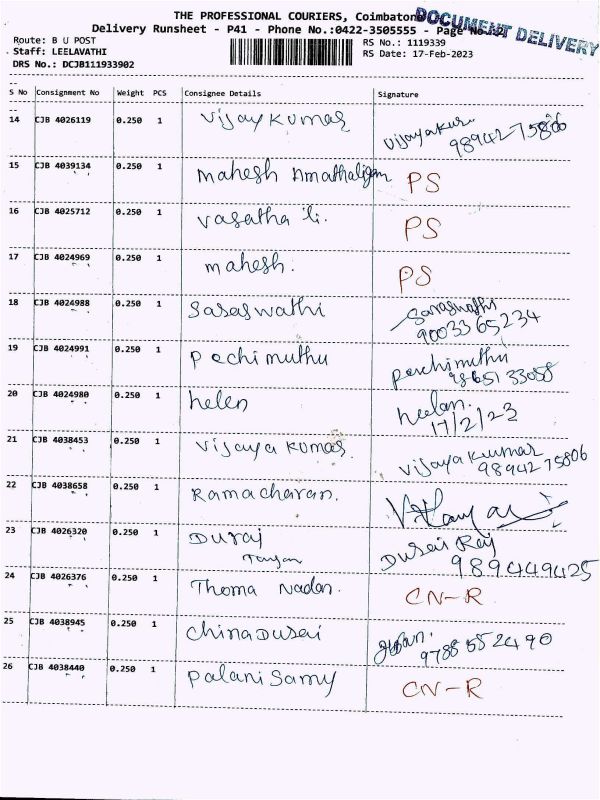 THE PROFESSIONAL COURIERS, Coimbatore
DOCUMENT DELIVERY
Delivery Runsheet - P41 - Phone No.:0422-3505555 - Page No.:2
Route: B U POST
RS No.: 1119339
Staff: LEELAVATHI
RS Date: 17-Feb-2023
DRS No.: DCJB111933902
S No Consignment No Weight PCS Consignee Details Signature
14 CJB 4026119 0.250 1 Vijay kumar Vijayakur. 98942 75806
15 CJB 4039134 0.250 1 mahesh PS
16 CJB 4025712 0.250 1 PS
17 CJB 4024969 0.250 1 mahesh. PS
18 CJB 4024988 0.250 1 Saraswathi Saraswathi 9003365234
19 CJB 4024991 0.250 1 Pechimuthu Pechimuthu 98651 33058
20 CJB 4024980 0.250 1 helen heelan. 17/2/23
21 CJB 4038453 0.250 1 Vijaya kumar. Vijaya kuumar 98942 75806
22 CJB 4038658 0.250 1 Ramacharan.
23 CJB 4026320 0.250 1 Duraj Durai Raj 9894449425
24 CJB 4026376 0.250 1 Thoma Nadar. CN-R
25 CJB 4038945 0.250 1 China Durai 9788552490
26 CJB 4038440 0.250 1 Palani Samy CN-R